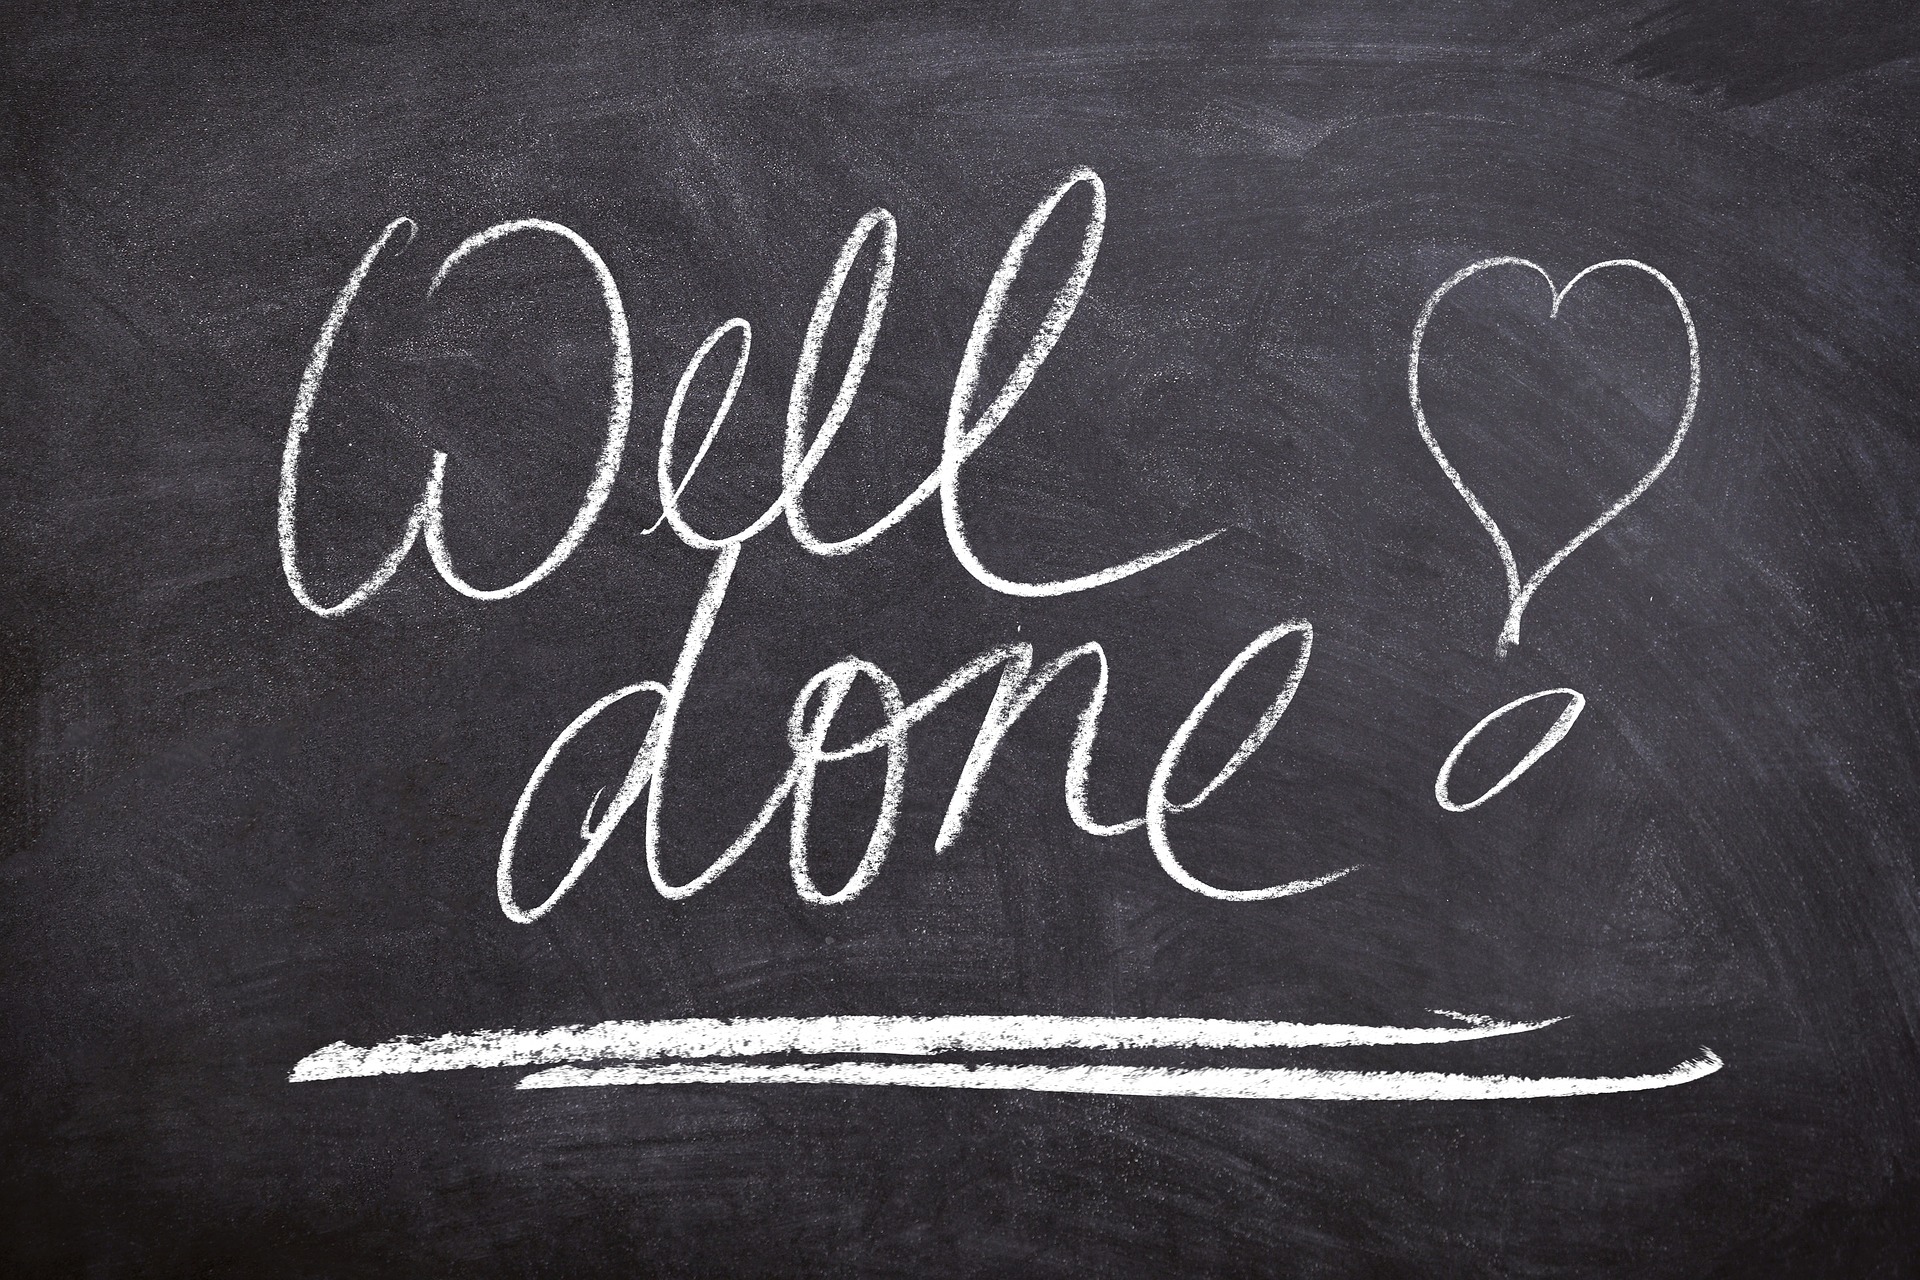 Well
done!